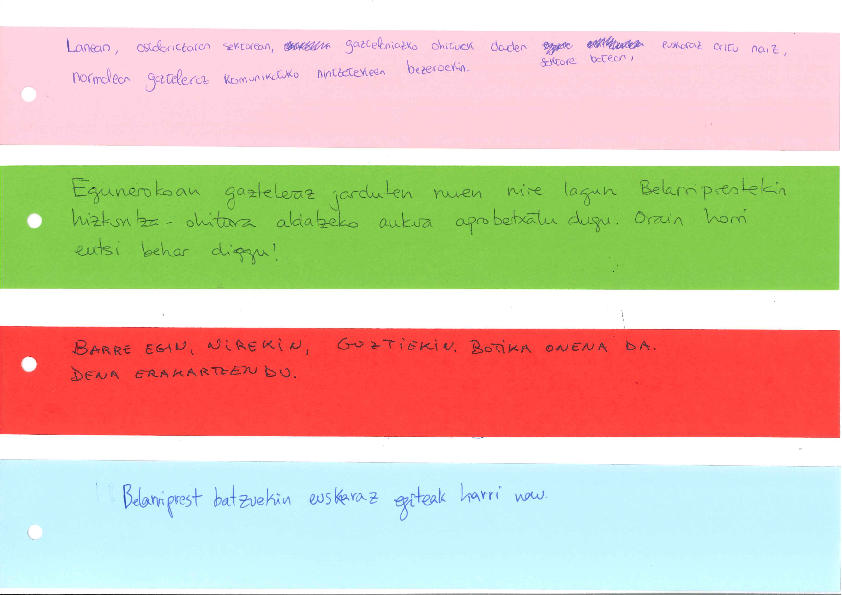 Lanean, ostalaritzaren sektorean, gaztelaniazko ohiturak dauden sektore batean, euskaraz aritu naiz,
normalean gazteleraz komunikatuko nintzatekeen bezeroekin.
Egunerokoan gazteleraz jarduten nuen nire lagun Belarriprestekin
hizkuntz-ohitura aldatzeko aukera aprobetxatu dugu. Orain horri
eutsi behar diogu!
BARRE EGIN, NIREKIN, GUZTIEKIN. BOTIKA ONENA DA.
DENA ERAKARTZEN DU.
Belarriprest batzuekin euskaraz egiteak harri nau.